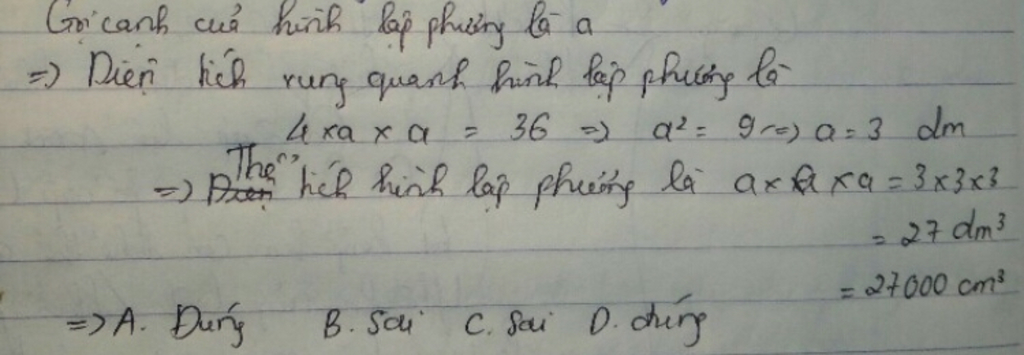 Gọi cạnh của hình lập phương là a
=> Diện tích xung quanh hình lập phương là
4 x a x a = 36 => a² = 9 => a = 3 dm
=> Thể tích hình lập phương là a x a x a = 3 x 3 x 3
= 27 dm³
= 27000 cm³
=> A. Đúng B. Sai C. Sai D. đúng